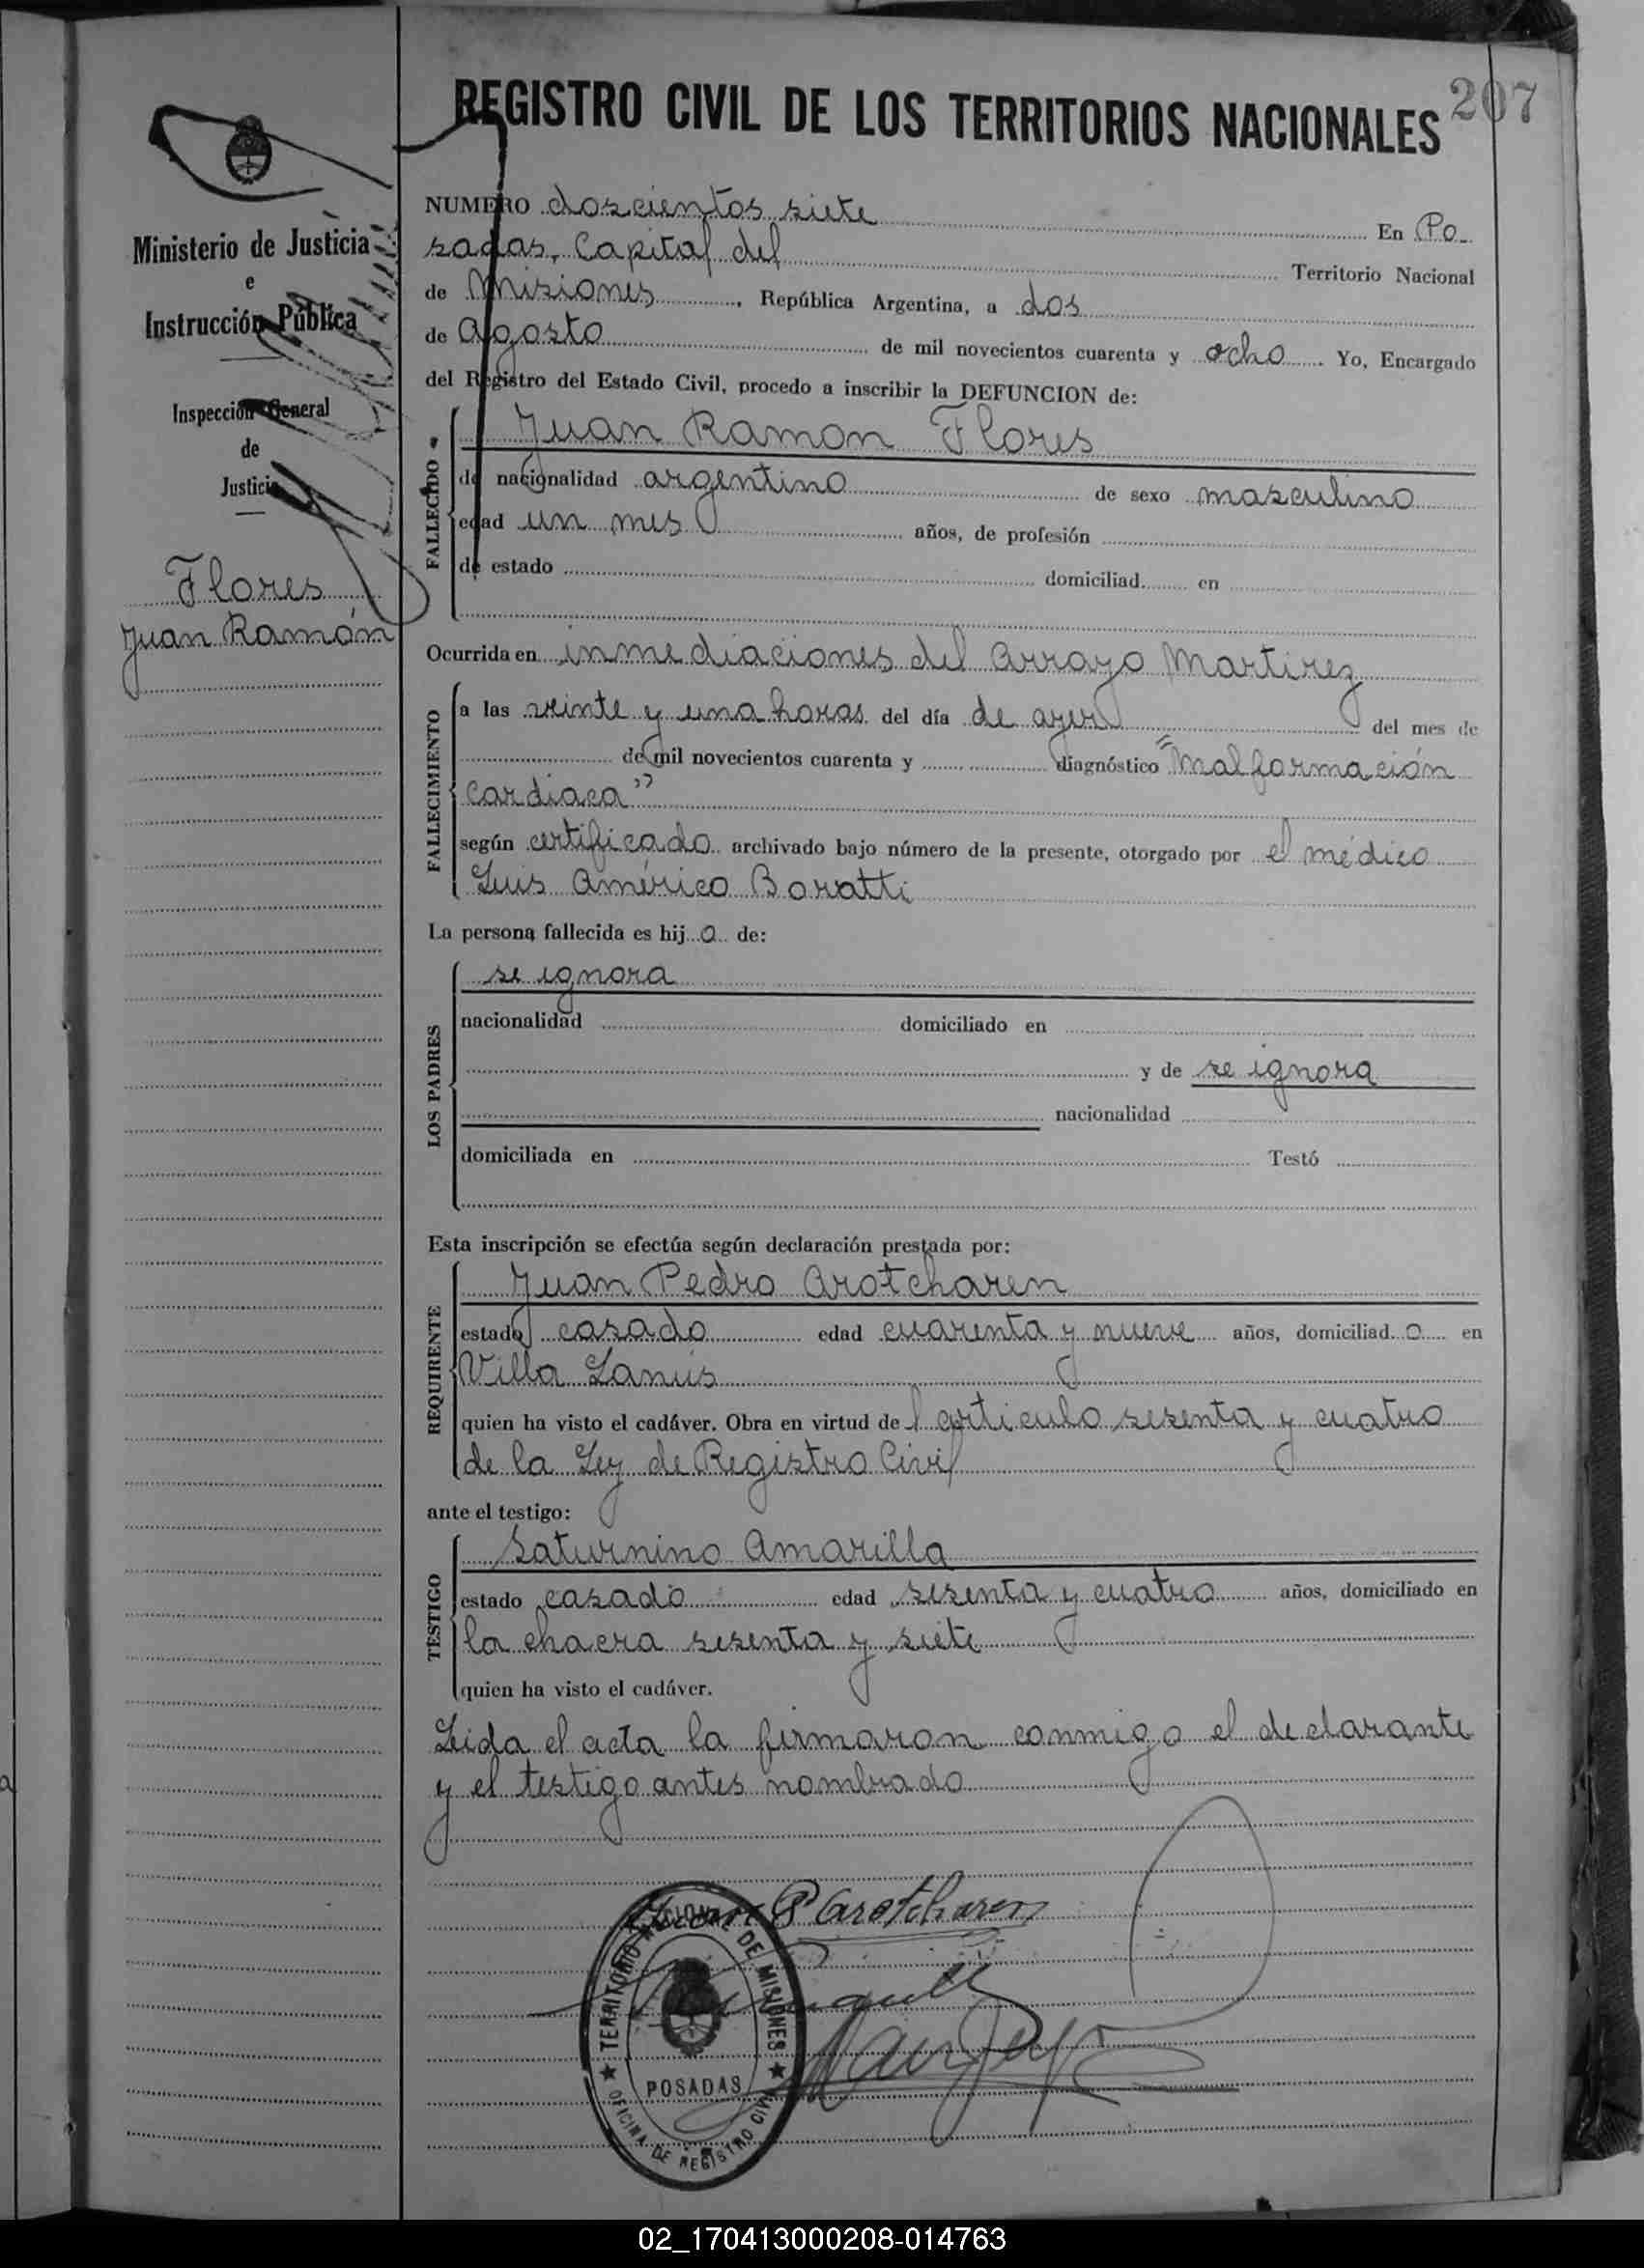 REGISTRO CIVIL DE LOS TERRITORIOS NACIONALES
207
Ministerio de Justicia
e
Instrucción Pública
Inspección General
de
Justicia
Flores
Juan Ramón
NUMERO doscientos siete En Po-
sadas, Capital del Territorio Nacional
de Misiones, República Argentina, a dos
de Agosto de mil novecientos cuarenta y ocho Yo, Encargado
del Registro del Estado Civil, procedo a inscribir la DEFUNCION de:
FALLECIDO
Juan Ramon Flores
de nacionalidad argentino de sexo masculino
edad un mes años, de profesión
de estado domiciliad en
Ocurrida en inmediaciones del Arroyo Martirez
FALLECIMIENTO
a las veinte y una horas del día de ayer del mes de
de mil novecientos cuarenta y diagnóstico "Malformación
cardiaca"
según certificado archivado bajo número de la presente, otorgado por el médico
Luis Américo Boratti
La persona fallecida es hijo de:
LOS PADRES
se ignora
nacionalidad domiciliado en
y de se ignora
nacionalidad
domiciliada en Testó
Esta inscripción se efectúa según declaración prestada por:
REQUIRENTE
Juan Pedro Arotcharen
estado casado edad cuarenta y nueve años, domiciliado en
Villa Lanús
quien ha visto el cadáver. Obra en virtud del articulo sesenta y cuatro
de la Ley de Registro Civil
ante el testigo:
TESTIGO
Saturnino Amarilla
estado casado edad sesenta y cuatro años, domiciliado en
la chacra sesenta y siete
quien ha visto el cadáver.
Leida el acta la firmaron conmigo el declarante
y el testigo antes nombrado
Juan P Arotcharen
TERRITORIO NACIONAL DE MISIONES
POSADAS
OFICINA DE REGISTRO CIVIL
02_170413000208-014763